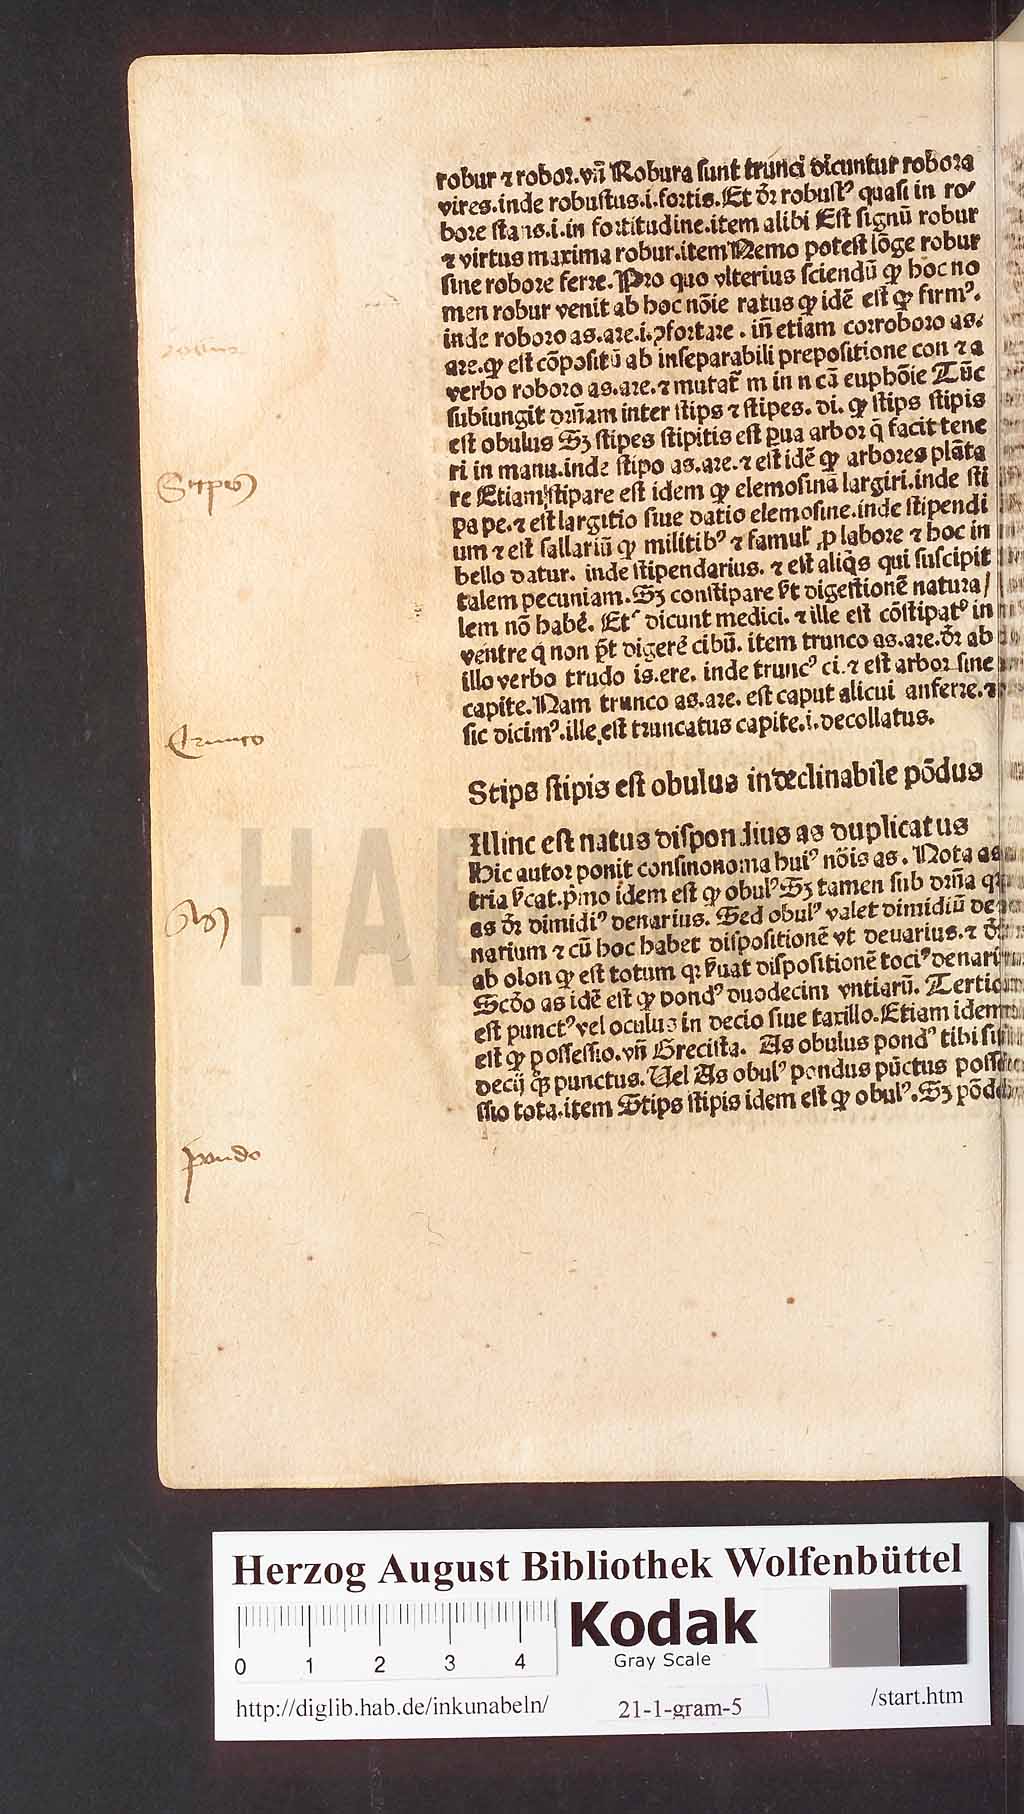 robur ⁊ robor. vñ Robura sunt trunci dicuntur robora
vires. inde robustus .i. fortis. Et dr̄ robustꝰ quasi in ro-
bore stans .i. in fortitudine. item alibi Est signū robur
⁊ virtus maxima robur. item Nemo potest lōge robur
sine robore ferre. Pro quo vlterius sciendū ꝙ hoc no
men robur venit ab hoc nōie ratus ꝙ idē est ꝙ firmꝰ.
inde roboro as. are .i. ꝯfortare . iñ etiam corroboro as.
are. ꝙ est cōpositū ab inseparabili prepositione con ⁊ a
verbo roboro as. are. ⁊ mutat̄ m in n cā euphōie Tūc
subiungit dr̄nam inter stips ⁊ stipes. di. ꝙ stips stipis
est obulus Sꝫ stipes stipitis est pua arbor q̄ facit tene
ri in manu. inde stipo as. are. ⁊ est idē ꝙ arbores plāta
re Etiam stipare est idem ꝙ elemosinā largiri. inde sti
pa pe. ⁊ est largitio siue datio elemosine. inde stipendi
um ⁊ est sallariū ꝙ militibꝰ ⁊ famul' p labore ⁊ hoc in
bello datur. inde stipendarius. ⁊ est aliq̄s qui suscipit
talem pecuniam. Sꝫ constipare ē digestionē natura/
lem nō habē. Et dicunt medici. ⁊ ille est cōstipatꝰ in
ventre q non pt digerē cibū. item trunco as. are. dr̄ ab
illo verbo trudo is. ere. inde truncꝰ ci. ⁊ est arbor sine
capite. Nam trunco as. are. est caput alicui anferre. ⁊
sic dicimꝰ. ille est truncatus capite .i. decollatus.
Stips stipis est obulus indeclinabile pōdus
Illinc est natus dispondius as duplicatus
Hic autor ponit consinonoma huiꝰ nōis as. Nota as
tria ſcat. pmo idem est ꝙ obulꝰ Sꝫ tamen sub dr̄na
as dr̄ dimidiꝰ denarius. Sed obulꝰ valet dimidiū de
narium ⁊ cū hoc habet dispositionē vt devarius. ⁊ dr̄
ab olon ꝙ est totum qꝛ ſuat dispositionē tociꝰ denarij
Scdo as idē est ꝙ pondꝰ duodecim vntiarū. Tertio
est punctꝰ vel oculus in decio siue taxillo. Etiam idem
est ꝙ possessio. vñ Grecista. As obulus pondꝰ tibi sit
decij qꝫ punctus. Uel As obulꝰ pondus pūctus posse
ssio tota. item Stips stipis idem est ꝙ obulꝰ. Sꝫ pōd
Stipes
Trunco
As
pondo
HAB
Herzog August Bibliothek Wolfenbüttel
0 1 2 3 4
Kodak
Gray Scale
http://diglib.hab.de/inkunabeln/ 21-1-gram-5 /start.htm